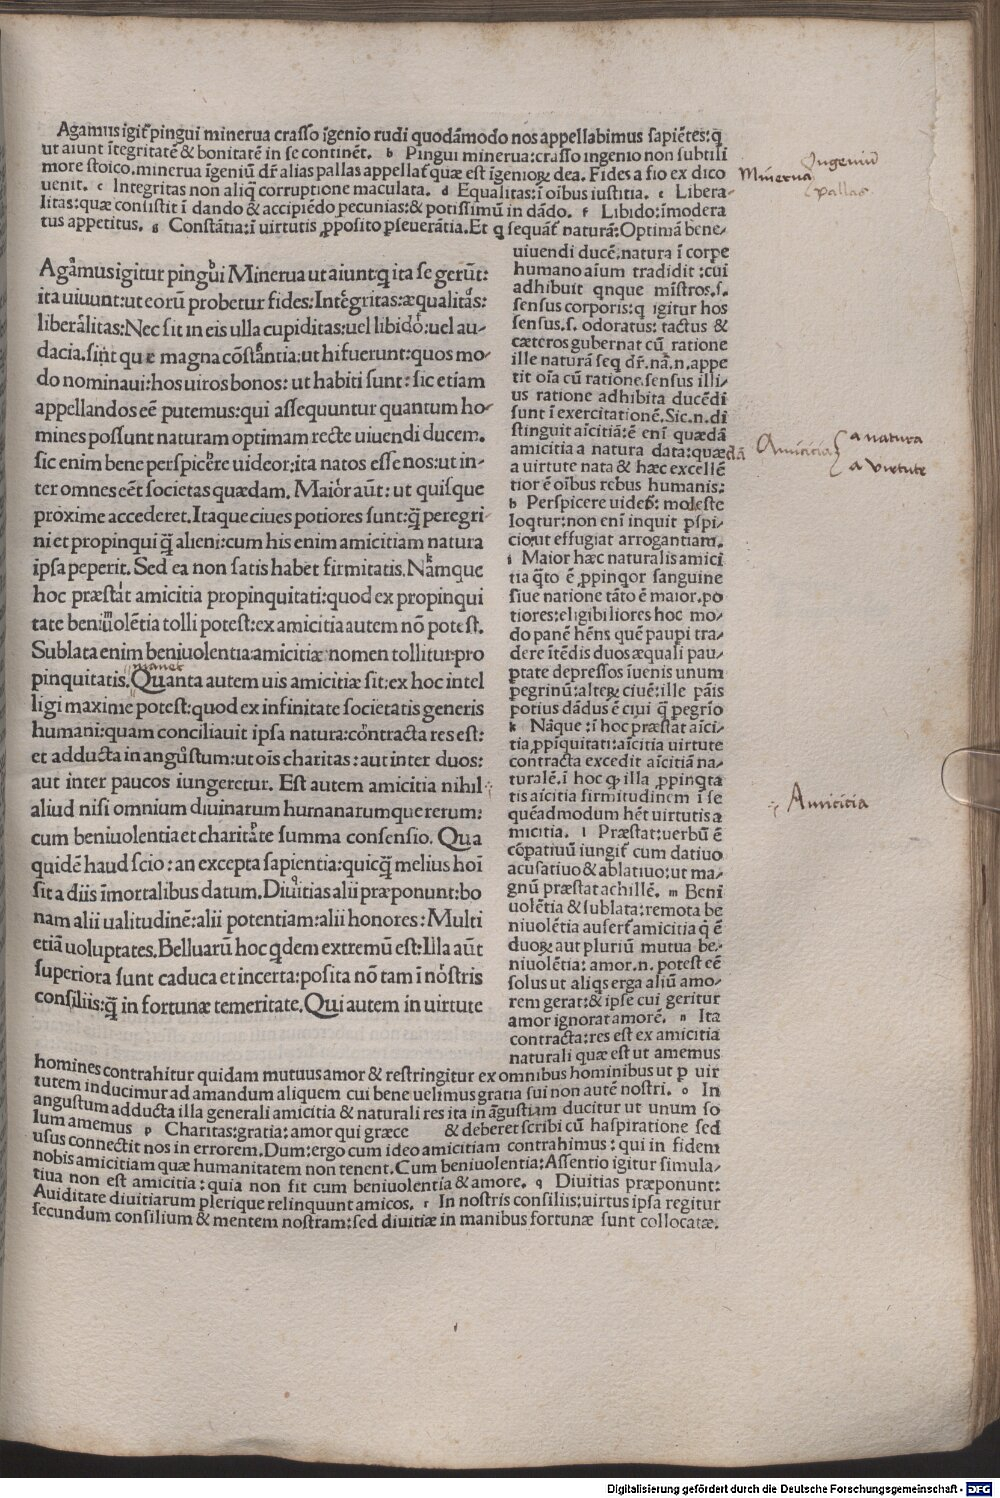 Agamus igit᷑ pingui minerua crasso īgenio rudi quodāmodo nos appellabimus sapiētes:q̄
ut aiunt ītegritatē & bonitatē in se continēt. b Pingui minerua:crasso ingenio non subtili
more stoico.minerua īgeniū dr̄ alias pallas appellat᷑ quæ est īgenioꝝ dea. Fides a fio ex dico
uenit. c Integritas non aliq̄ corruptione maculata. d Equalitas:ī oībus iustitia. e Libera-
litas:quæ consistit ī dando & accipiēdo pecunias:& potissimū in dādo. f Libido:īmodera
tus appetitus. g Constātia:ī uirtutis ꝓposito ꝑseuerātia.Et q sequāt᷑ naturā:Optimā bene-
Ingeniū
Minerua
pallas
Agamus igitur pingui Minerua ut aiunt:q ita se gerūt:
ita uiuunt:ut eorū probetur fides:Integritas:æqualitas:
liberalitas:Nec sit in eis ulla cupiditas:uel libido:uel au-
dacia.sint quæ magna cōstantia:ut hi fuerunt:quos mo-
do nominaui:hos uiros bonos: ut habiti sunt: sic etiam
appellandos eē putemus:qui assequuntur quantum ho-
mines possunt naturam optimam recte uiuendi ducem.
sic enim bene perspicere uideor:ita natos esse nos:ut in-
ter omnes eēt societas quædam. Maior aūt: ut quisque
proxime accederet.Itaque ciues potiores sunt:q̄ peregri-
ni et propinqui q̄ alieni:cum his enim amicitiam natura
ipsa peperit. Sed ea non satis habet firmitatis.Namque
hoc præstat amicitia propinquitati:quod ex propinqui
tate beniuolētia tolli potest:ex amicitia autem nō potest.
Sublata enim beniuolentia:amicitiæ nomen tollitur:pro
manet
pinquitatis.Quanta autem uis amicitiæ sit:ex hoc intel
ligi maxime potest:quod ex infinitate societatis generis
humani:quam conciliauit ipsa natura:contracta res est:
et adducta in angustum:ut oīs charitas:aut inter duos:
aut inter paucos iungeretur. Est autem amicitia nihil
aliud nisi omnium diuinarum humanarumque rerum:
cum beniuolentia et charitate summa consensio. Qua
quidē haud scio: an excepta sapientia:quicq̄ melius hoī
sit a diis īmortalibus datum.Diuitias alii præponunt:bo
nam alii ualitudinē:alii potentiam:alii honores:Multi
etiā uoluptates.Belluarū hoc qdem extremū est:Illa aūt
superiora sunt caduca et incerta:posita nō tam ī nostris
consiliis:q̄ in fortunæ temeritate.Qui autem in uirtute
uiuendi ducē.natura ī corpe
humano aīum tradidit :cui
adhibuit qnque mīstros.s.
sensus corporis:q igitur hos
sensus.s. odoratus: tactus &
cæteros gubernat cū ratione
ille naturā seq dr̄.nā.n.appe
tit oīa cū ratione.sensus illi-
us ratione adhibita ducēdi
sunt ī exercitationē.Sic.n.di
stinguit aīcitiā:ē enī quædā
amicitia a natura data:quædā
a uirtute nata & hæc excellē
tior ē oībus rebus humanis:
h Perspicere uideor: modeste
loqtur:non enī inquit ꝑspi-
cio:ut effugiat arrogantiam.
i Maior hæc naturalis amici
tia q̄to ē ꝓpinqor sanguine
siue natione tāto ē maior.po
tiores:eligibiliores hoc mo-
do panē hēns quē paupi tra-
dere ītēdis duos æquali pau-
ptate depressos īuenis unum
peregrinū:alteꝝ ciuē:ille pāis
potius dādus ē ciui q̄ pegrīo
k Nāque:ī hoc præstat aīci-
tia ꝓpīquitati:aīcitia uirtute
contracta excedit aīcitiā na-
turalē.ī hoc ꝙ illa ꝓpinqta
tis aīcitia firmitudinem ī se
quēadmodum hēt uirtutis a
micitia. l Præstat:uerbū ē
cōpatiuū iungit᷑ cum datiuo
acusatiuo & ablatiuo:ut ma-
gnū præstat achillē. m Beni
uolētia & sublata:remota be
niuolētia aufert᷑ amicitia q̄ ē
duoꝝ aut pluriū mutua be-
niuolētia: amor.n. potest eē
solus ut aliqs erga aliū amo-
rem gerat:& ipse cui geritur
amor ignorat amorē. n Ita
contracta:res est ex amicitia
naturali quæ est ut amemus
Amicitia
a natura
a virtute
Amicitia
homines contrahitur quidam mutuus amor & restringitur ex omnibus hominibus ut ꝑ uir
tutem inducimur ad amandum aliquem cui bene uelimus gratia sui non autē nostri. o In
angustum adducta illa generali amicitia & naturali res ita in āgustiam ducitur ut unum so
lum amemus p Charitas:gratia:amor qui græce & deberet scribi cū haspiratione sed
usus connectit nos in errorem.Dum:ergo cum ideo amicitiam contrahimus: qui in fidem
nobis amicitiam quæ humanitatem non tenent.Cum beniuolentia:Assentio igitur simula-
tiua non est amicitia:quia non fit cum beniuolentia & amore. q Diuitias præponunt:
Auiditate diuitiarum plerique relinquunt amicos. r In nostris consiliis:uirtus ipsa regitur
secundum consilium & mentem nostram:sed diuitiæ in manibus fortunæ sunt collocatæ.
Digitalisierung gefördert durch die Deutsche Forschungsgemeinschaft - DFG